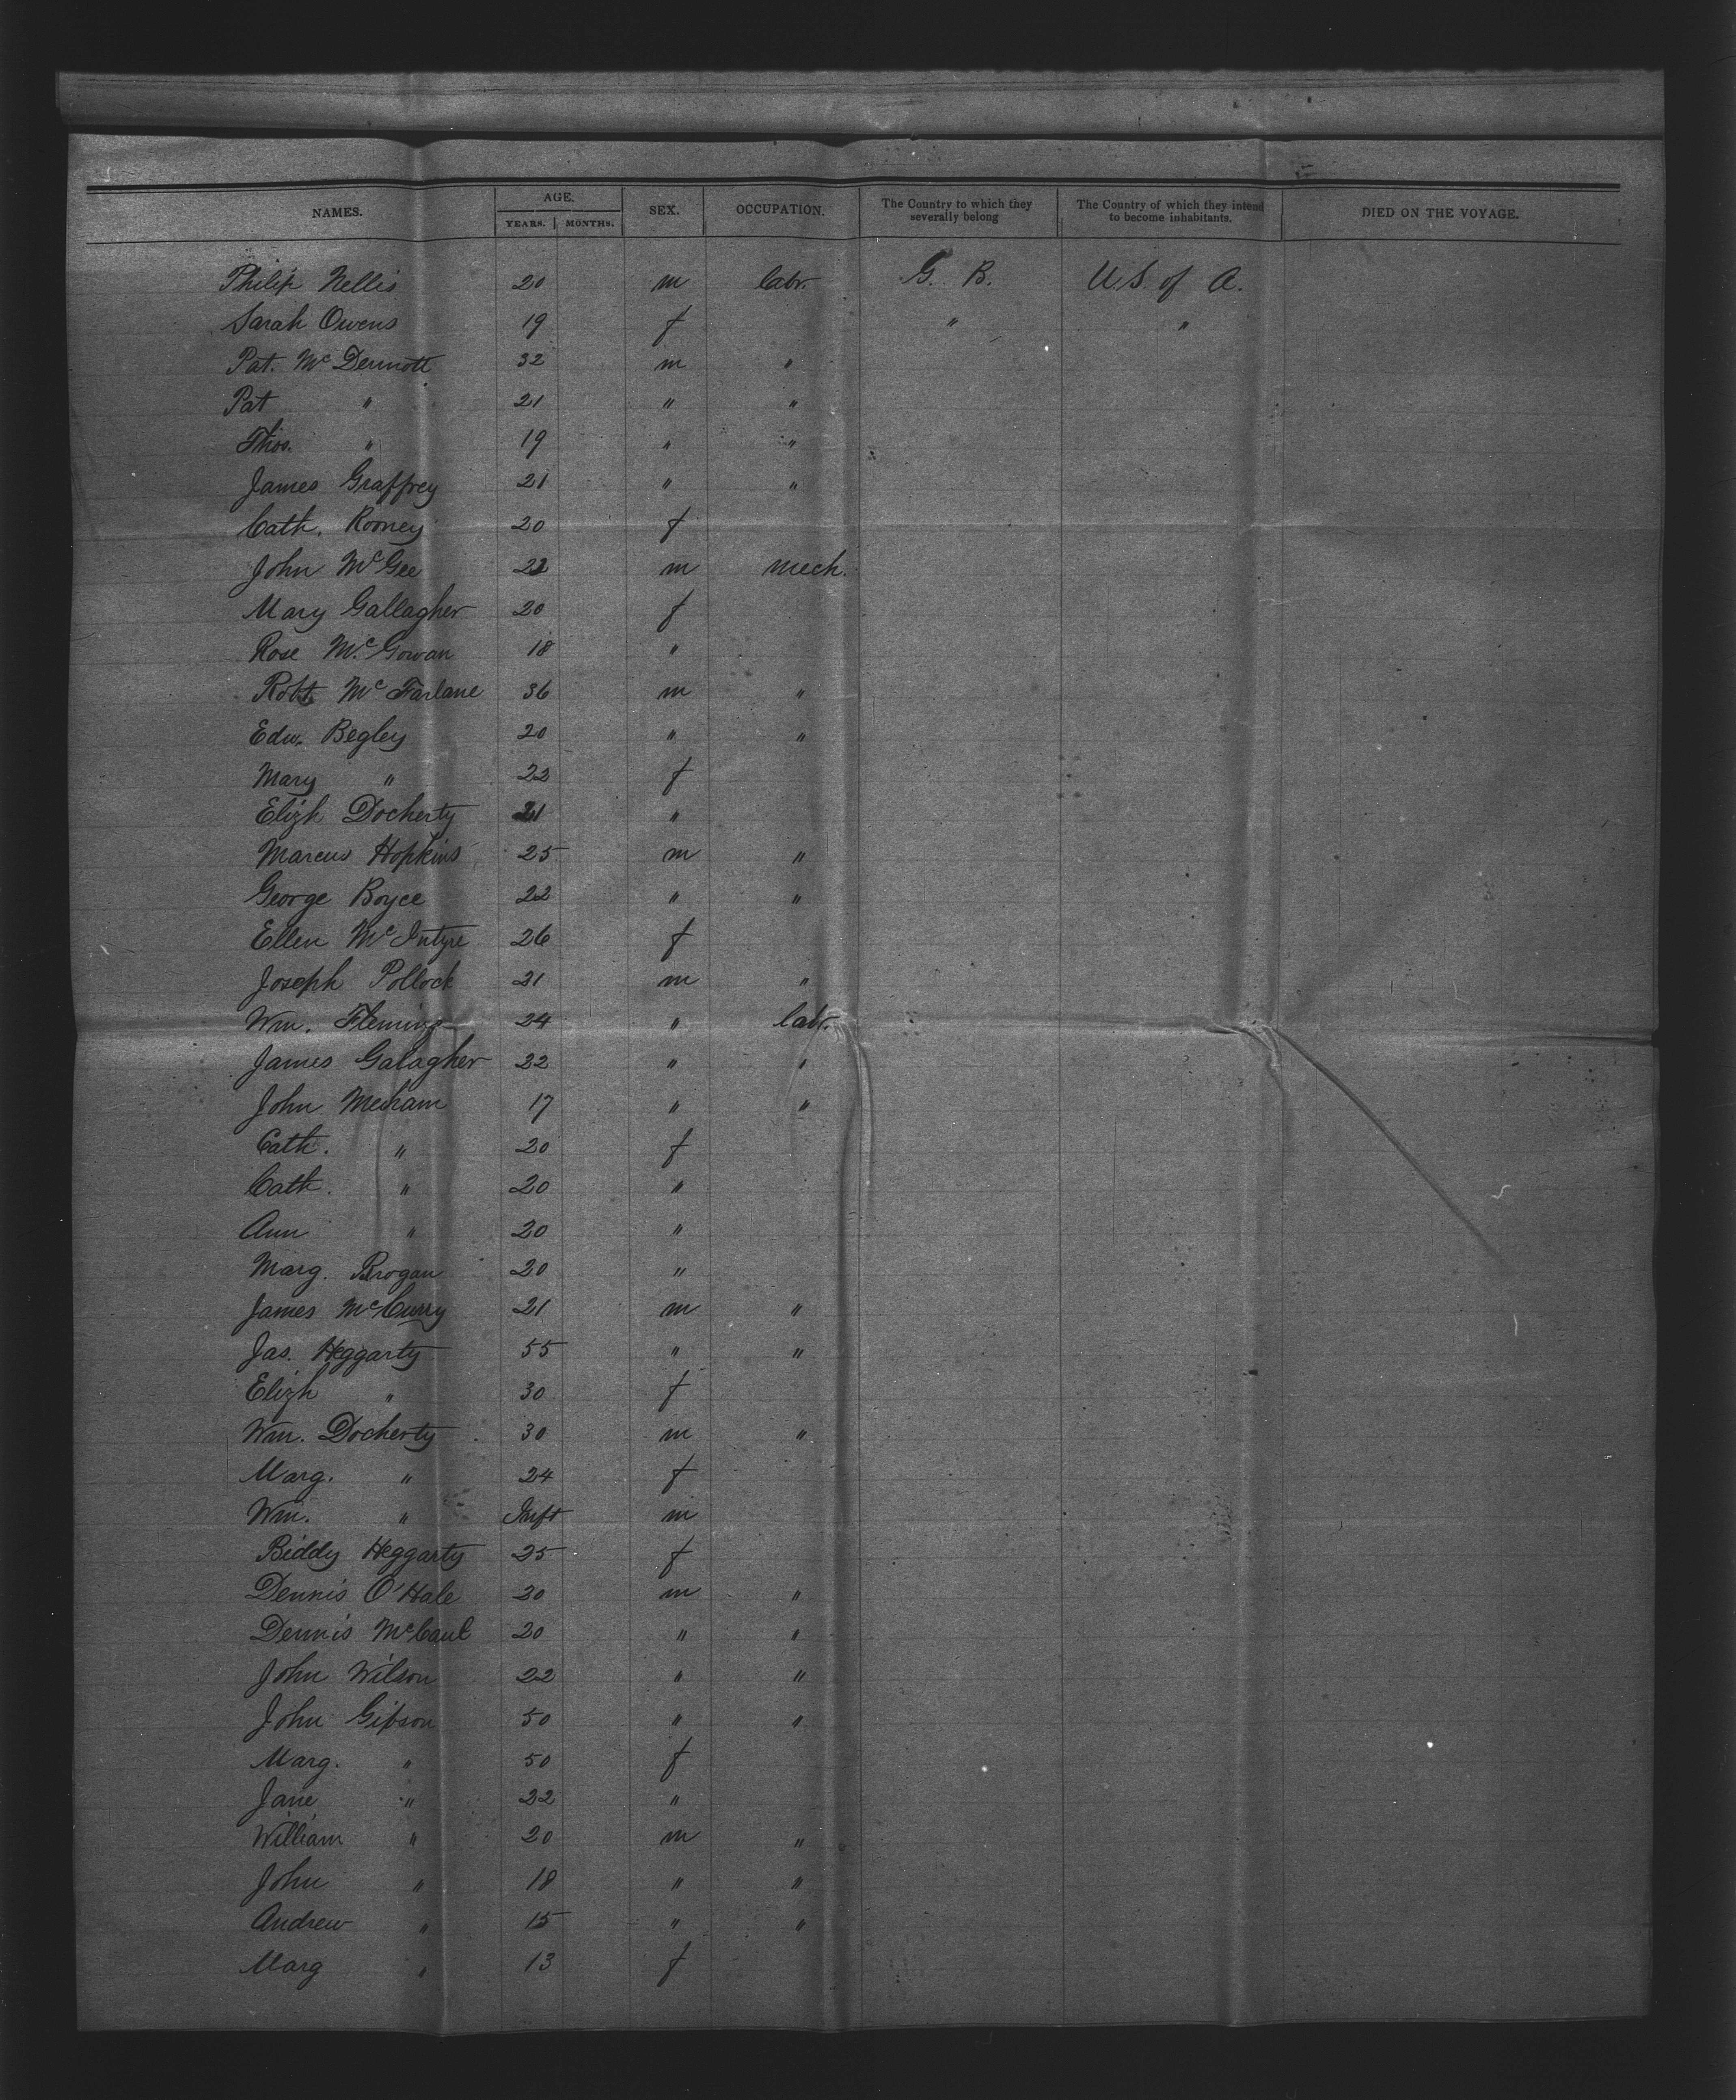 NAMES. AGE. SEX. OCCUPATION. The Country to which they severally belong The Country of which they intend to become inhabitants. DIED ON THE VOYAGE.
YEARS. MONTHS.
Philip Nellis 20 m labr. G. B. U.S. of A.
Sarah Owens 19 f " "
Pat. McDermott 32 m "
Pat " 21 " "
Thos. " 19 " "
James Graffrey 21 " "
Cath. Rooney 20 f
John McGee 22 m mech.
Mary Gallagher 20 f
Rose McGowan 18 "
Robt. McFarlane 36 m "
Edw. Begley 20 " "
Mary " 22 f
Elizh Docherty 21 "
Marcus Hopkins 25 m "
George Boyce 22 " "
Ellen McIntyre 26 f
Joseph Pollock 21 m "
Wm. Fleming 24 " labr.
James Galagher 22 " "
John Mecham 17 " "
Cath. " 20 f
Cath. " 20 "
Ann " 20 "
Marg. Brogan 20 "
James McCurry 21 m "
Jas. Heggarty 55 " "
Elizh " 30 f
Wm. Docherty 30 m "
Marg. " 24 f
Wm. " Inft m
Biddy Heggarty 25 f
Dennis O'Hale 20 m "
Dennis McCaul 20 " "
John Wilson 22 " "
John Gibson 50 " "
Marg. " 50 f
Jane " 22 "
William " 20 m "
John " 18 " "
Andrew " 15 " "
Marg " 13 f